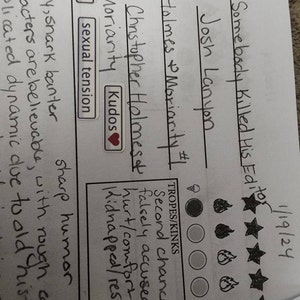 1/19/24
Somebody Killed His Editor
Josh Lanyon
Holmes & Moriarity #1
Christopher Holmes &
Moriarity
sexual tension
Kudos
TROPES/KINKS
Second chanc
falsely accuse
hurt/comfort
kidnapped/res
sharp humor
snark banter
acters are believable, with rough e
licated dynamic due to old his